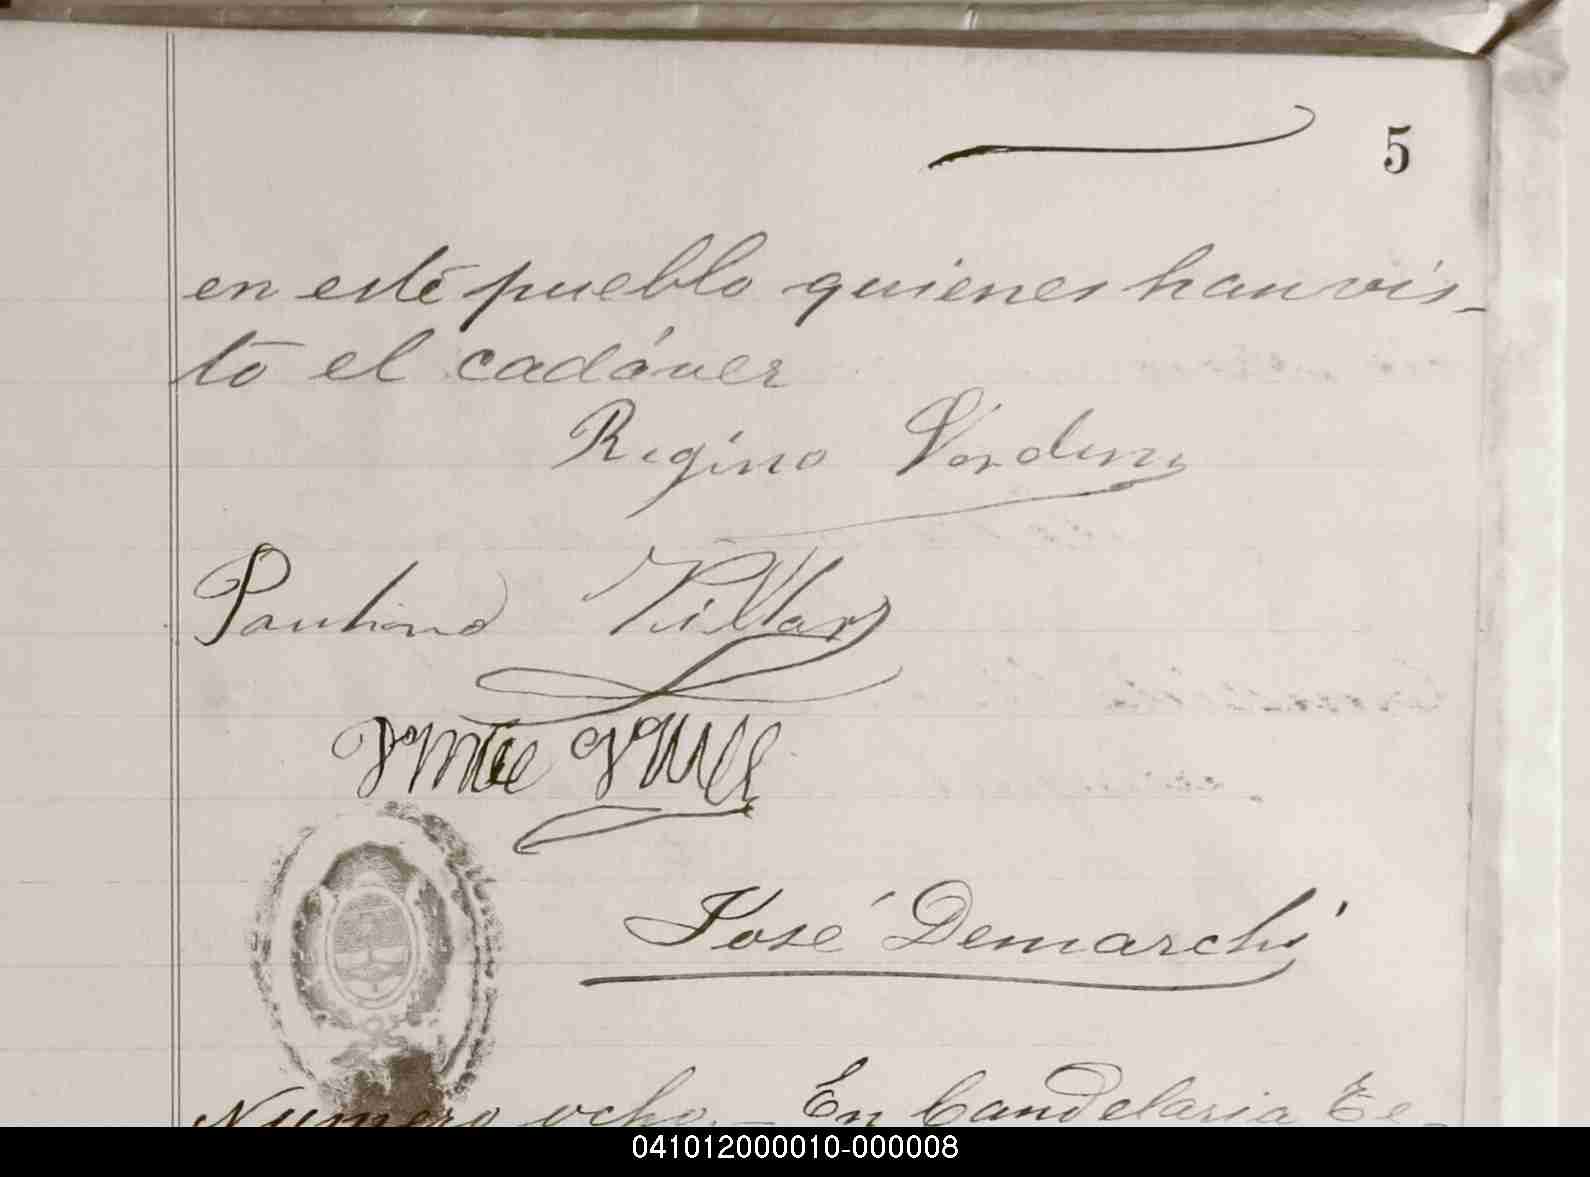 5
en este pueblo quienes han vis-
to el cadáver
Regino
Paulino Villar
José Demarchi
Numero ocho.- En Candelaria Te-
041012000010-000008